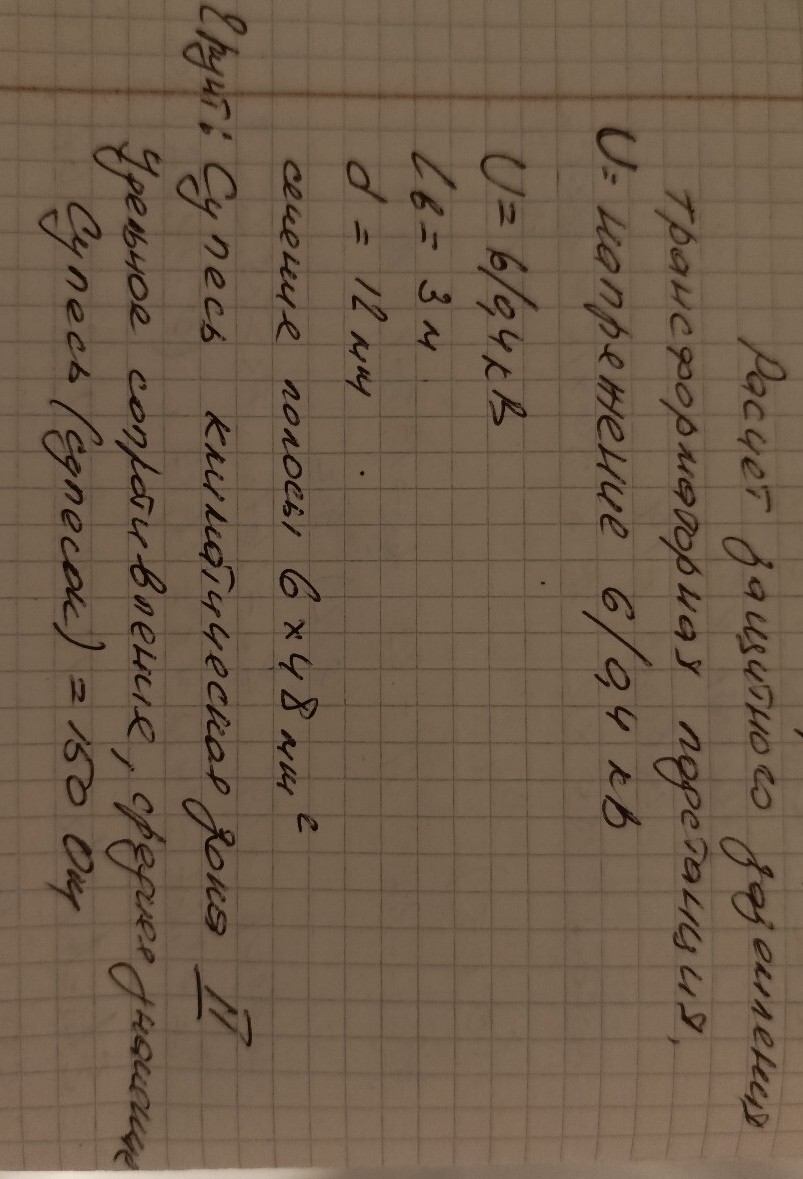 Расчет защитного заземления
трансформаторная подстанция,
U = напрежение 6/0,4 кВ
U = 6/0,4 кВ
Lв = 3 м
d = 12 мм
сечение полосы 6 × 48 мм²
Грунт: Супесь климатическая зона II
Удельное сопротивление, среднее значение
Супесь (супесок) = 150 Ом